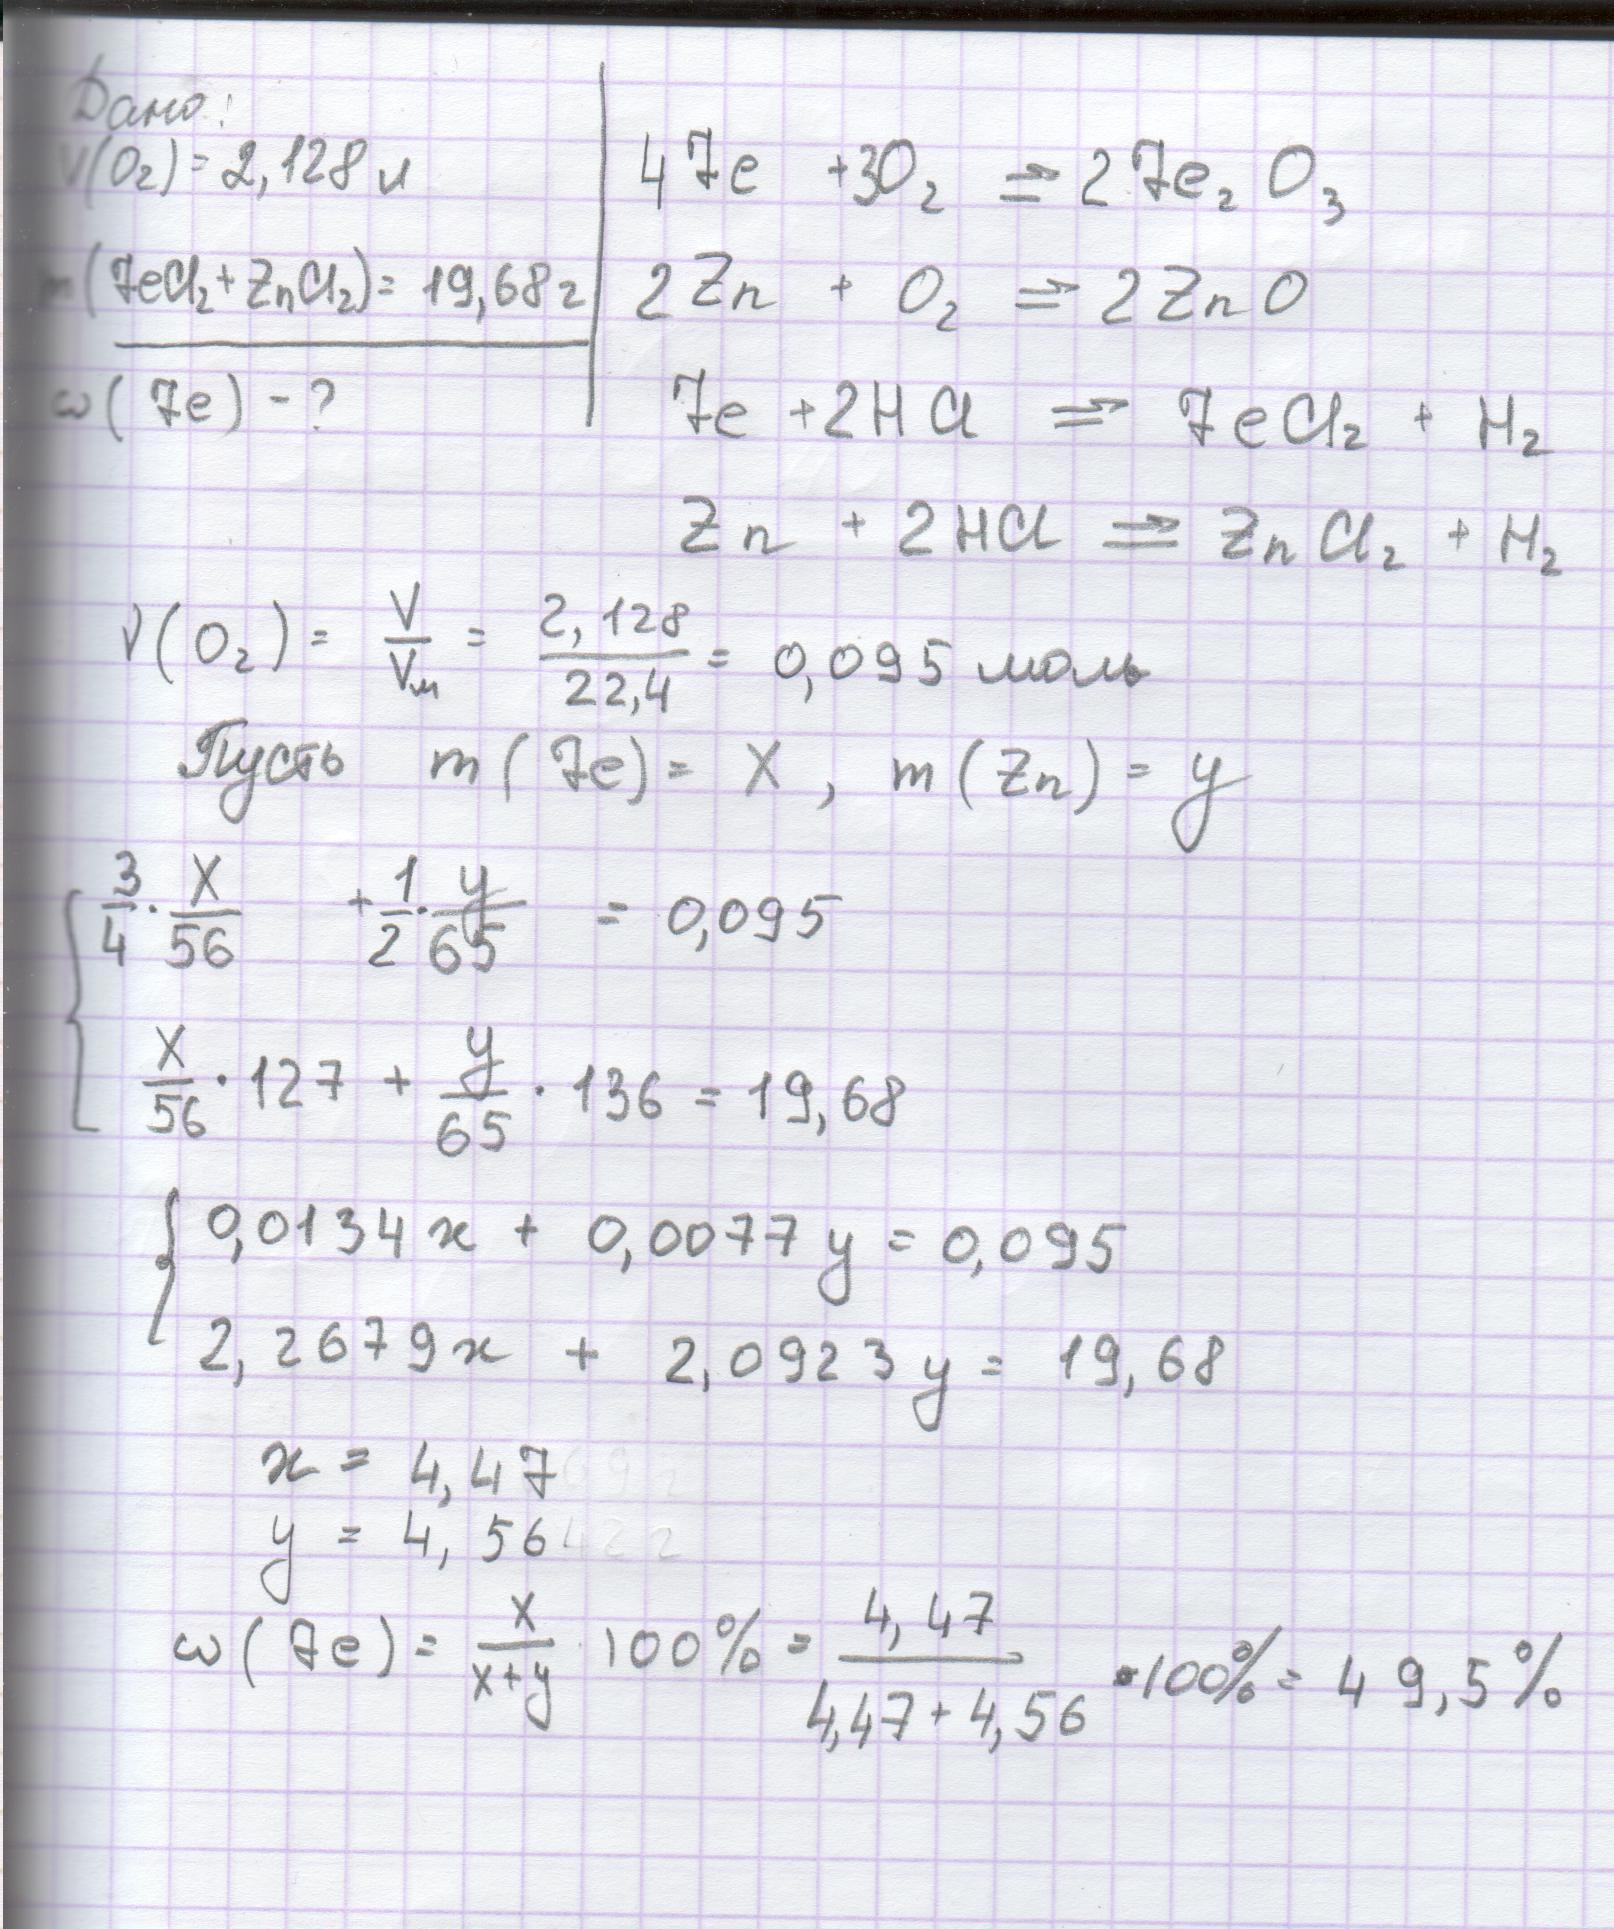 Дано:
V(O₂) = 2,128 л
m(FeCl₂ + ZnCl₂) = 19,68 г
ω(Fe) - ?
4Fe + 3O₂ ⇒ 2Fe₂O₃
2Zn + O₂ ⇒ 2ZnO
Fe + 2HCl ⇒ FeCl₂ + H₂
Zn + 2HCl ⇒ ZnCl₂ + H₂
ν(O₂) = V/Vм = 2,128/22,4 = 0,095 моль
Пусть m(Fe) = x, m(Zn) = y
3/4 · x/56 + 1/2 · y/65 = 0,095
x/56 · 127 + y/65 · 136 = 19,68
0,0134x + 0,0077y = 0,095
2,2679x + 2,0923y = 19,68
x = 4,47
y = 4,56
ω(Fe) = x/(x+y) 100% = 4,47/(4,47+4,56) · 100% = 49,5%